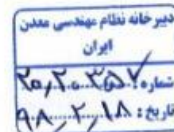 دبیرخانه نظام مهندسی معدن
ایران
شماره:
تاریخ: ۹۸/۲/۱۸